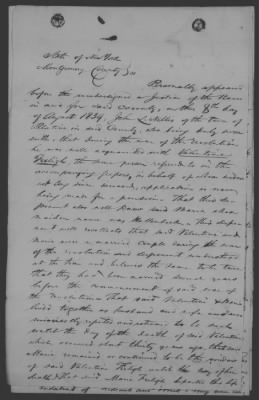 State of New York
Montgomery County } ss
Personally appeared
before the undersigned a Justice of the Peace
in and for said County, on the 8th day
of August 1839, John L. of the town of
Palatine in said County, who being duly sworn
saith, that during the war of the revolution
he was well acquainted with Valentine
the same person referred to in the
accompanying papers, in behalf of whose widow
application is now
being made for a pension. That this de
ponent also well knew said Maria whose
maiden name was
ent well recollects that said Valentine and
Maria were a married couple during the war
of the revolution and deponent understood
at the time and believes the same to be true
that they had been married several years
before the commencement of said war of
the Revolution That said Valentine & Maria
lived together as husband and wife and were
universally reputed and received to be such
until the day of the death of said Valentine
which occurred about thirty years ago, that said
Maria remained or continued to be the widow
of said Valentine until the day of her
death. That said Maria besides the